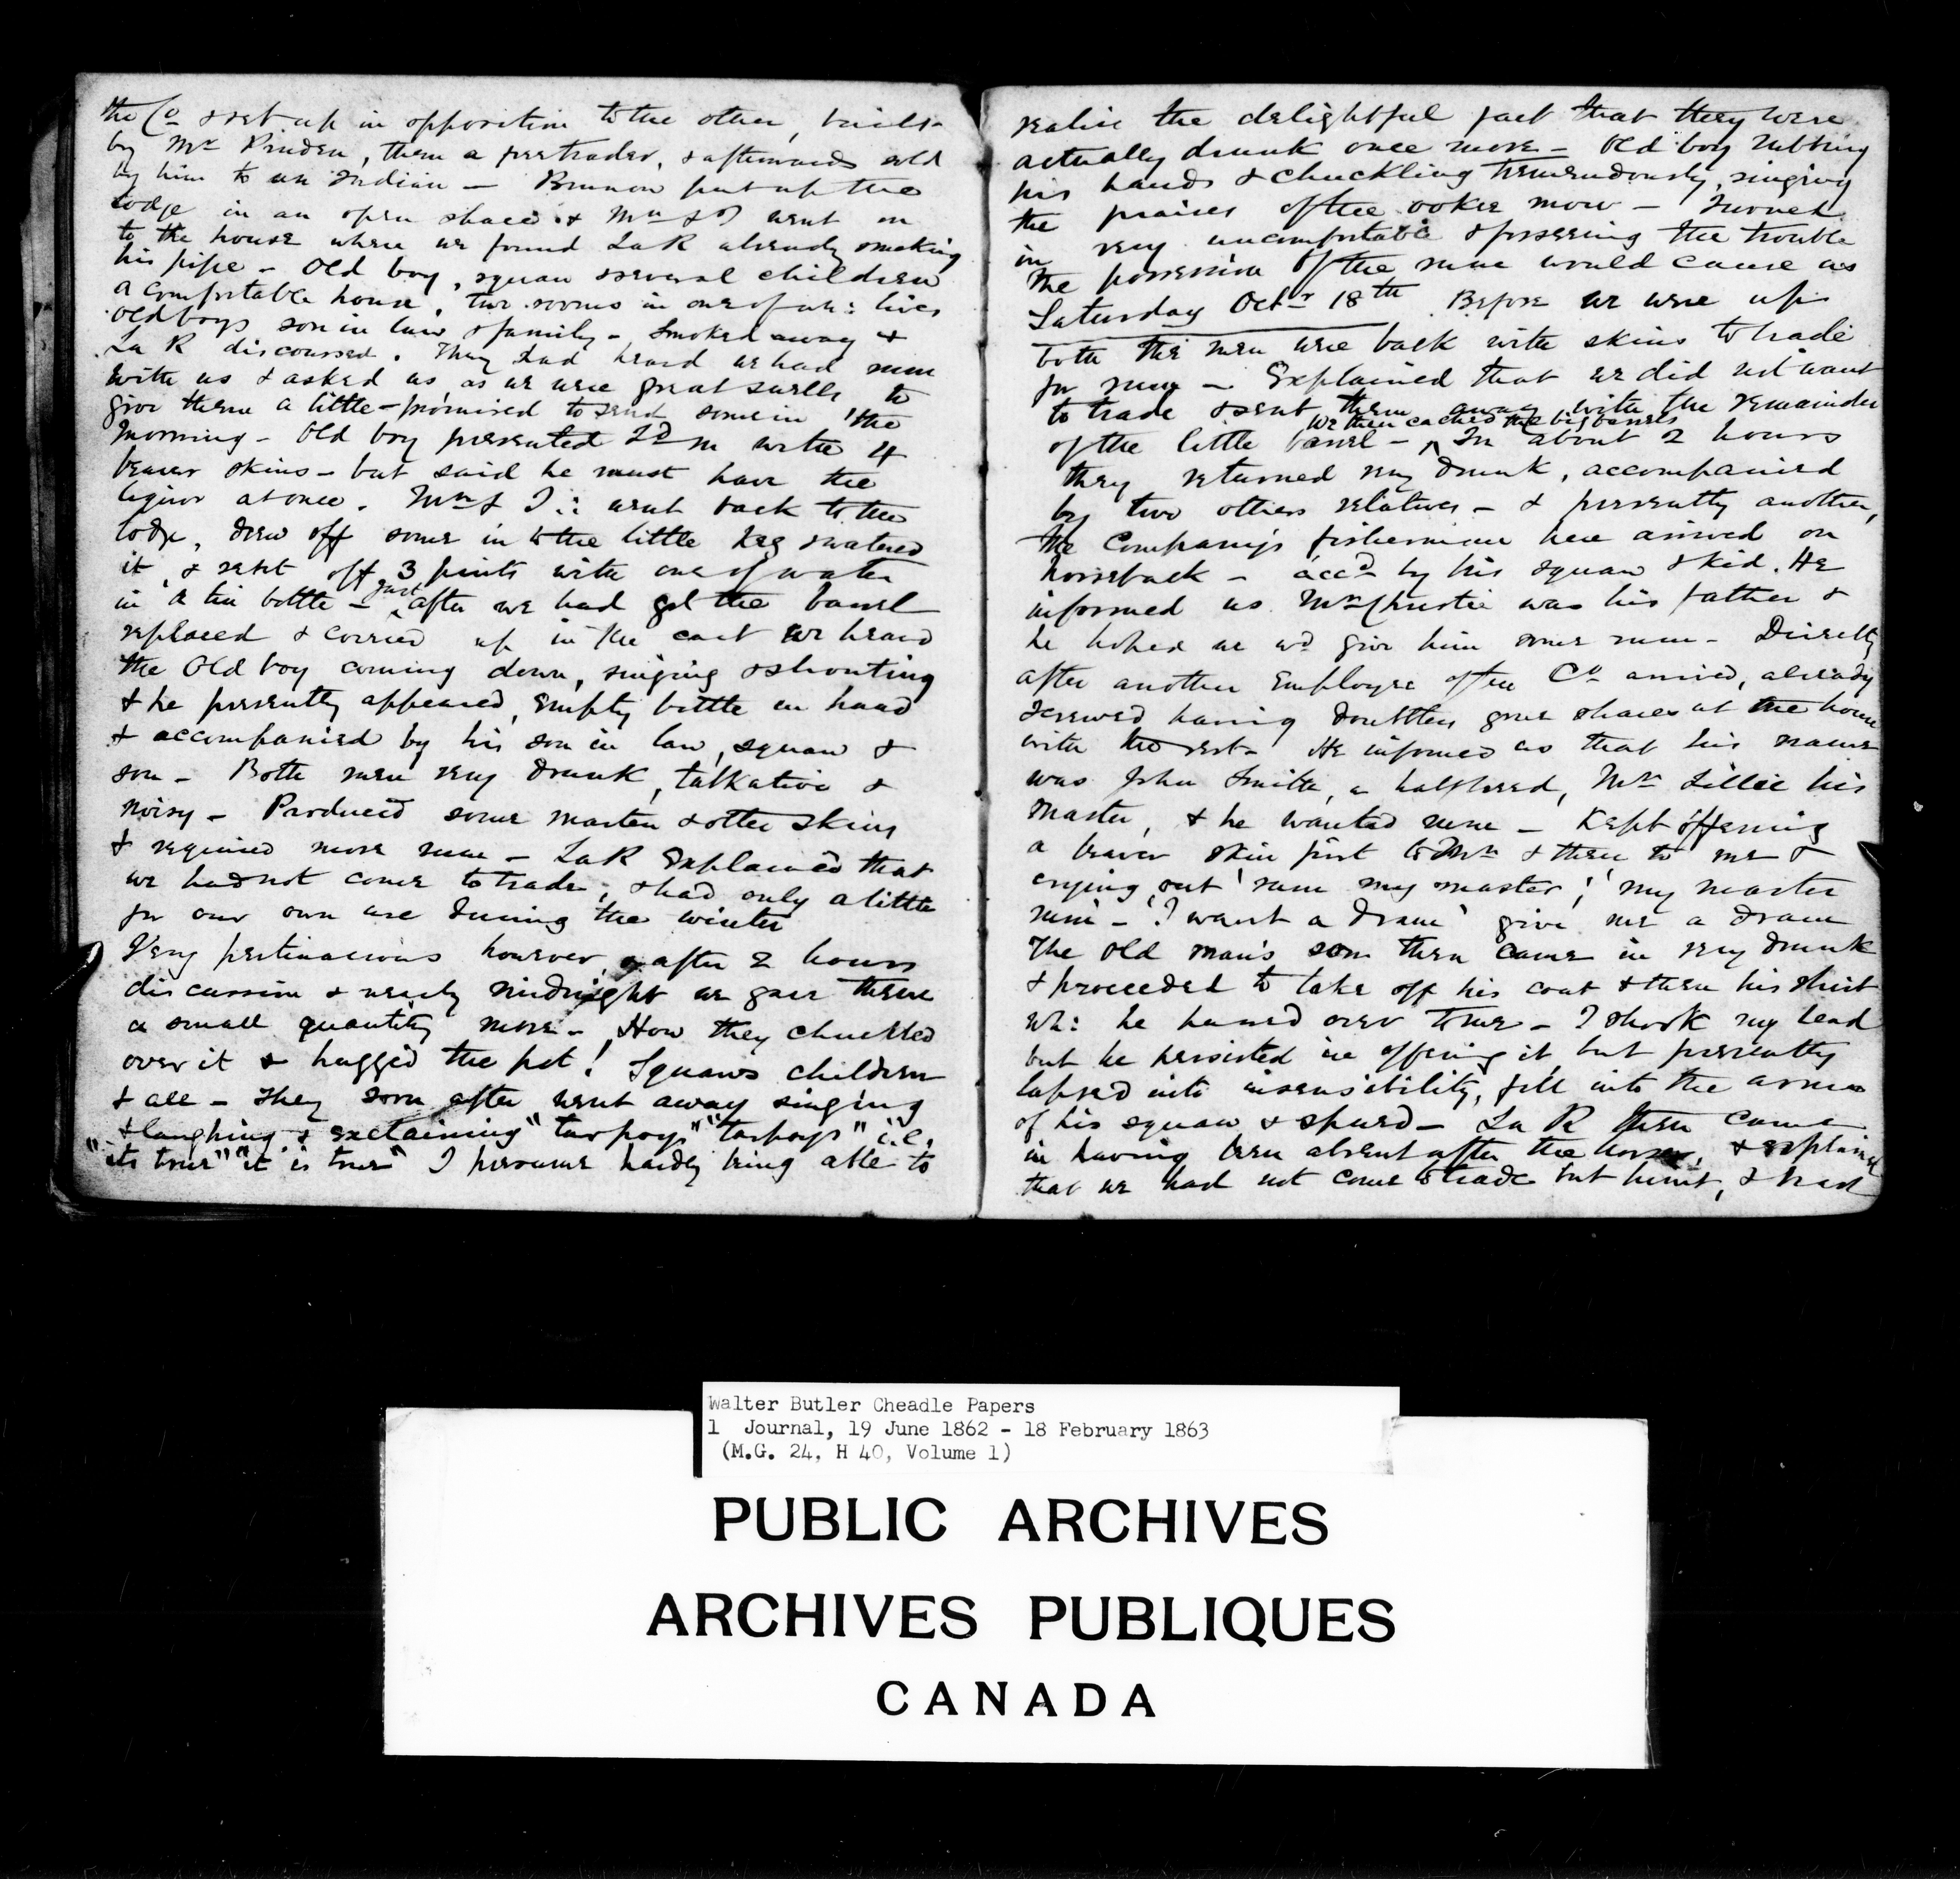 the Co & set up in opposition to the other, built
by Mr Pruden, then a freetrader, & afterwards sold
by him to an Indian — Bruneau put up the
lodge in an open space & Mn & I went on
to the house where we found La R already smoking
his pipe — Old boy, squaw & several children
a comfortable house, two rooms in one of wh: lives
old boys son in law & family — Smoked away &
La R discoursed. They had heard we had rum
with us & asked us as we were great swells to
give them a little — promised to send some in the
morning — Old boy presented Ld M with 4
beaver skins — but said he must have the
liquor at once. Mn & I :: went back to the
lodge, drew off some in to the little keg & watered
it, & sent off 3 pints with one of water
in a tin bottle — just after we had got the barrel
replaced & covered up in the cart we heard
the Old boy coming down, singing & shouting
& he presently appeared, empty bottle in hand
& accompanied by his son in law, squaw &
son — Both men very drunk, talkative &
noisy — Produced some marten & otter skins
& required more rum — LaR Explained that
we had not come to trade, & had only a little
for our own use during the winter
Very pertinacious however, & after 2 hours
discussion & nearly midnight we gave them
a small quantity more — How they chuckled
over it & hugged the pot! Squaws children
& all — They soon after went away singing
& laughing & exclaiming "tarpoys" "tarpoys" i.e.
"its true" "it is true" I presume hardly being able to
realise the delightful fact that they were
actually drunk once more — Old boy rubbing
his hands & chuckling tremendously, singing
the praises of the ookie mow — Turned
in very uncomfortable & foreseeing the trouble
the possession of the rum would cause us
Saturday Octr 18th Before we were up
both the men were back with skins to trade
for rum — Explained that we did not want
to trade & sent them away with the remainder
We then cached the big barrels
of the little barrel — In about 2 hours
they returned very drunk, accompanied
by two others relatives — & presently another,
the Company's fisherman here arrived on
horseback — accd by his squaw & kid. He
informed us Mr Christie was his father &
he hoped we wd give him some rum — Directly
after another Employee of the Co arrived, already
screwed having doubtless gone shares at the house
with the rest — He informed us that his name
was John Smith, a halfbreed, Mr Lillie his
master, & he wanted rum — Kept offering
a beaver skin first to Mn & then to me &
crying out 'rum my master;' 'my master
rum' — 'I want a dram' give me a dram
The old man's son then came in very drunk
& proceeded to take off his coat & then his shirt
wh: he handed over to me — I shook my head
but he persisted in offering it, but presently
lapsed into insensibility, fell into the arms
of his squaw & spued — La R then came
in having been absent after the horses, & explained
that we had not come to trade but hunt, & had
Walter Butler Cheadle Papers
1 Journal, 19 June 1862 - 18 February 1863
(M.G. 24, H 40, Volume 1)
PUBLIC ARCHIVES
ARCHIVES PUBLIQUES
CANADA